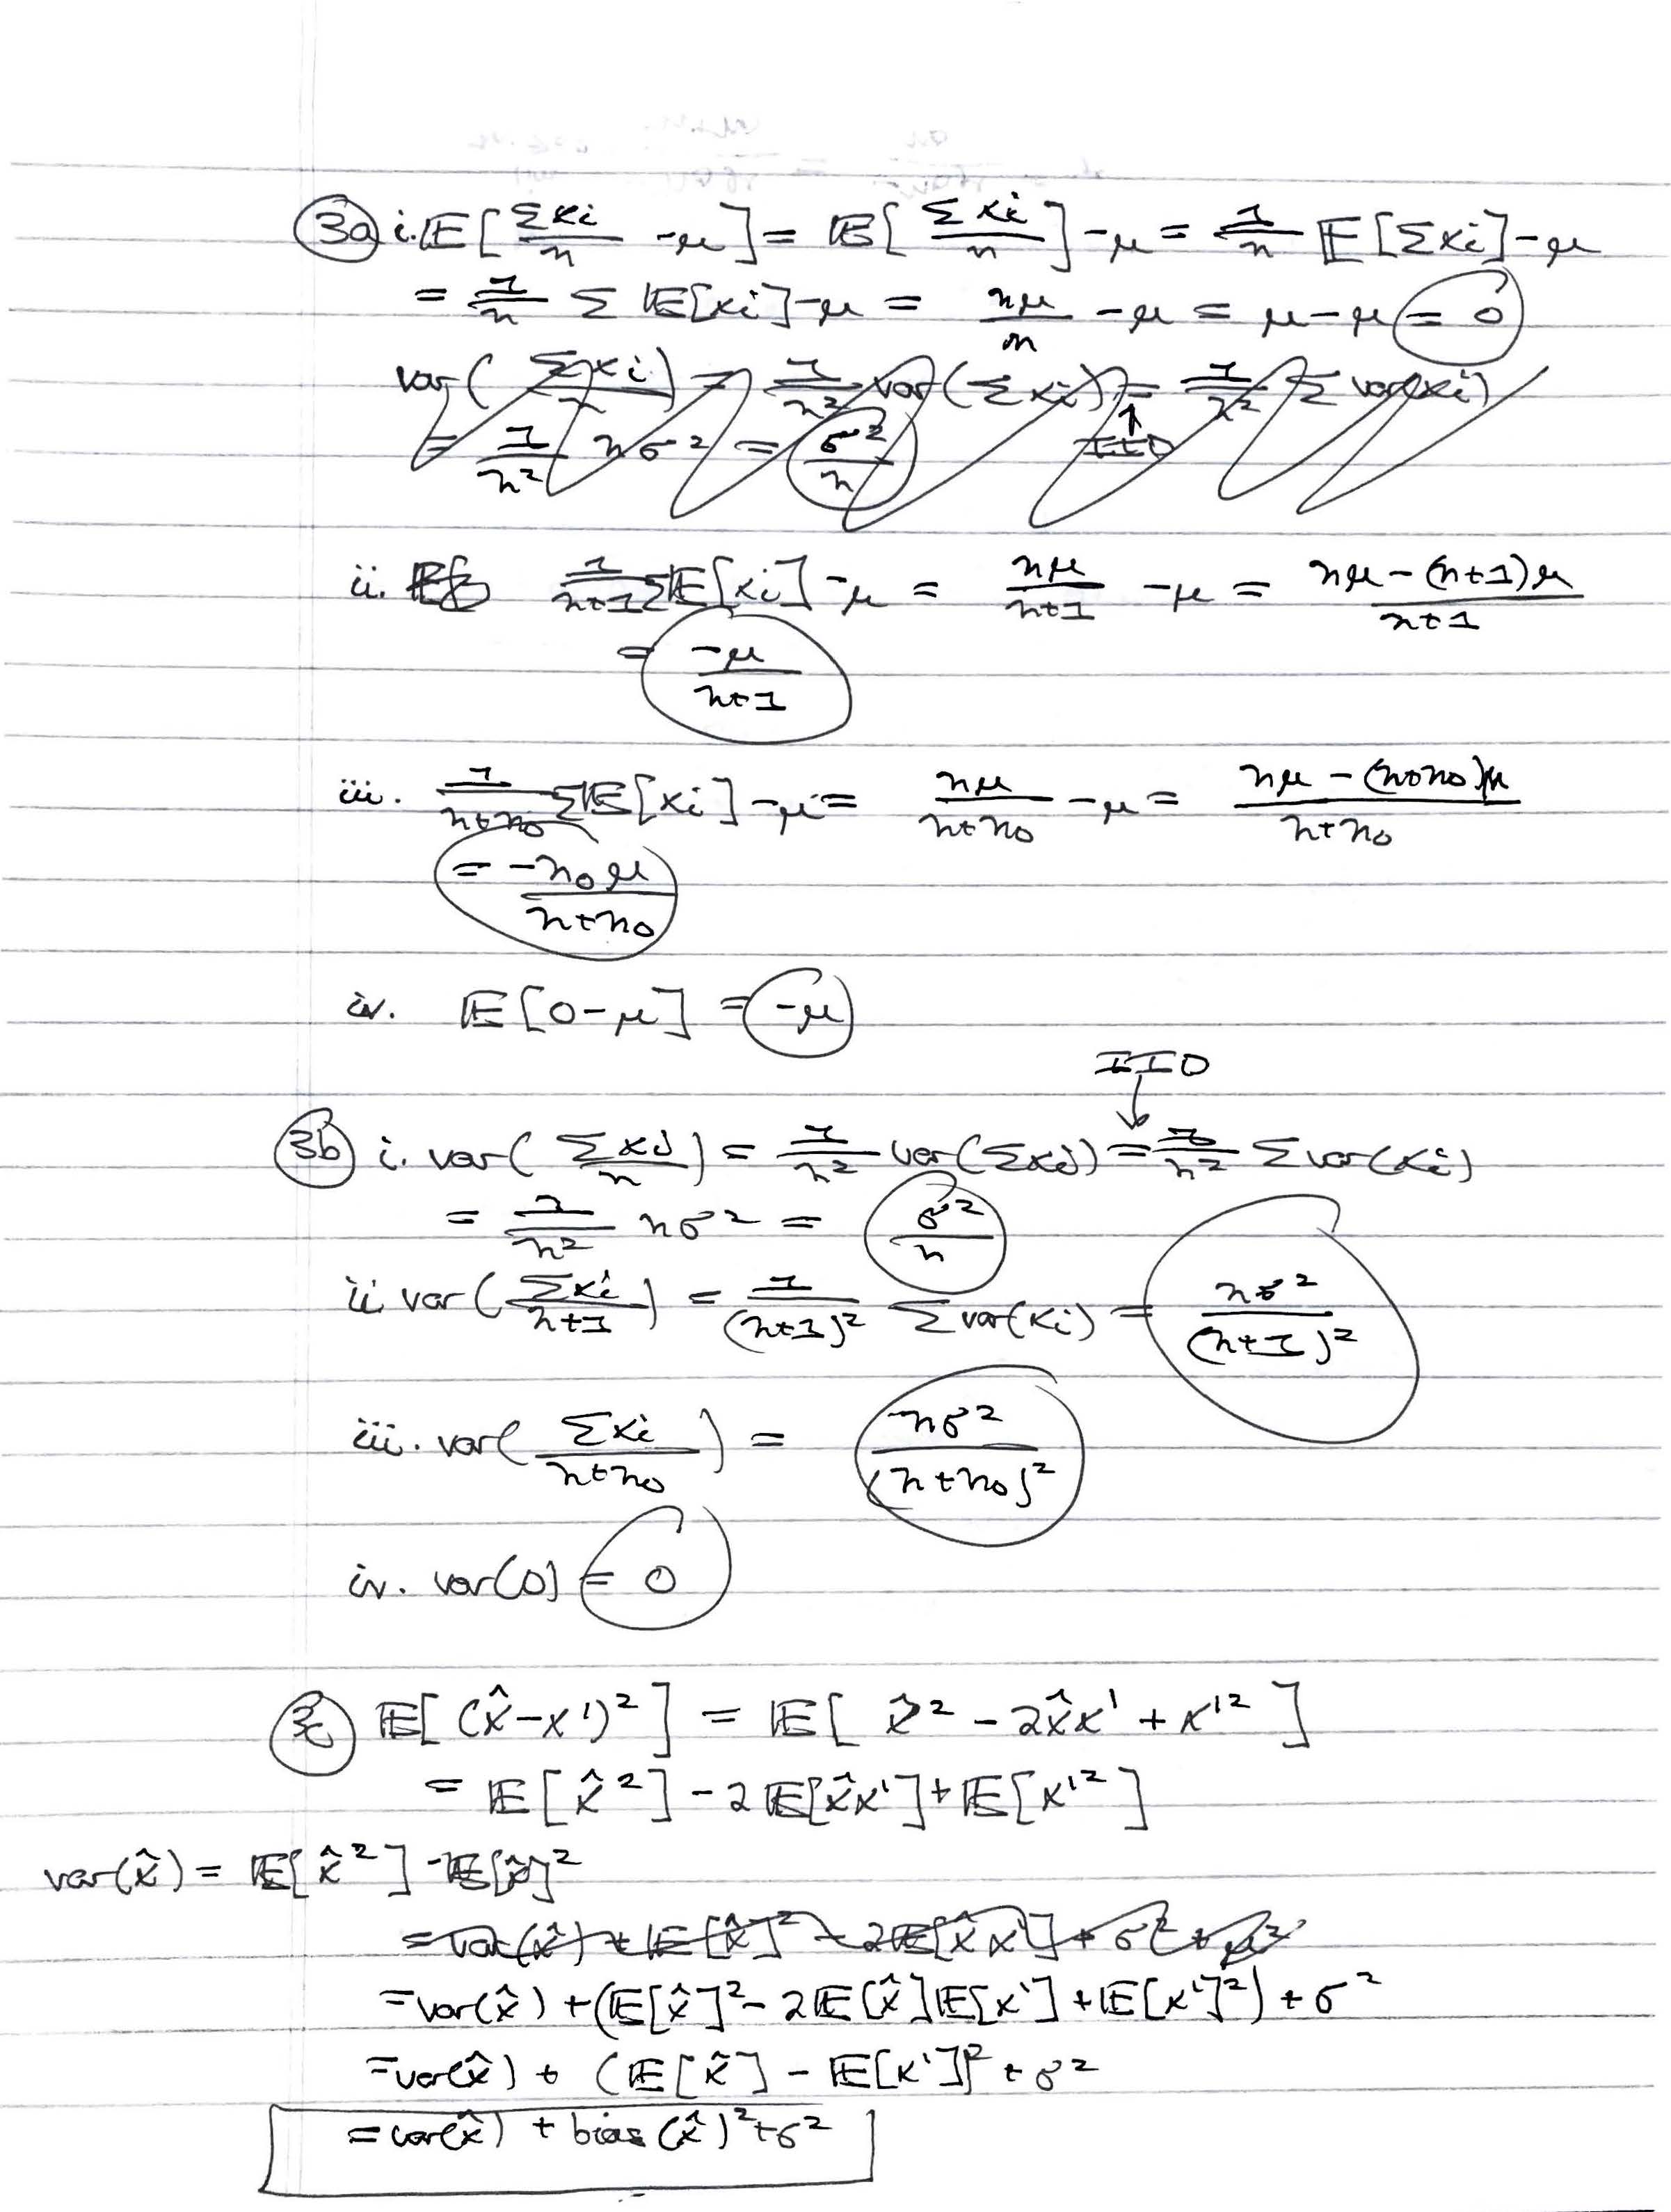 3a i. 𝔼[Σxi/n - μ] = 𝔼[Σxi/n] - μ = 1/n 𝔼[Σxi] - μ
= 1/n Σ 𝔼[xi] - μ = nμ/n - μ = μ - μ = 0
var(Σxi/n) = 1/n² var(Σxi) = 1/n² Σ var(xi)
= 1/n² nσ² = σ²/n ↑ IID
ii. 1/(n+1) Σ𝔼[xi] - μ = nμ/(n+1) - μ = (nμ - (n+1)μ)/(n+1)
= -μ/(n+1)
iii. 1/(n+n₀) Σ𝔼[xi] - μ = nμ/(n+n₀) - μ = (nμ - (n+n₀)μ)/(n+n₀)
= -n₀μ/(n+n₀)
iv. 𝔼[0-μ] = -μ
IID
↓
3b i. var(Σxi/n) = 1/n² var(Σxi) = 1/n² Σ var(xi)
= 1/n² nσ² = σ²/n
ii var(Σxi/(n+1)) = 1/(n+1)² Σ var(xi) = nσ²/(n+1)²
iii. var(Σxi/(n+n₀)) = nσ²/(n+n₀)²
iv. var(0) = 0
3c 𝔼[(x̂-x')²] = 𝔼[x̂² - 2x̂x' + x'²]
= 𝔼[x̂²] - 2𝔼[x̂x'] + 𝔼[x'²]
var(x̂) = 𝔼[x̂²] - 𝔼[x̂]²
= var(x̂) + 𝔼[x̂]² - 2𝔼[x̂x'] + σ² + μ²
= var(x̂) + (𝔼[x̂]² - 2𝔼[x̂]𝔼[x'] + 𝔼[x']²) + σ²
= var(x̂) + (𝔼[x̂] - 𝔼[x'])² + σ²
= var(x̂) + bias(x̂)² + σ²